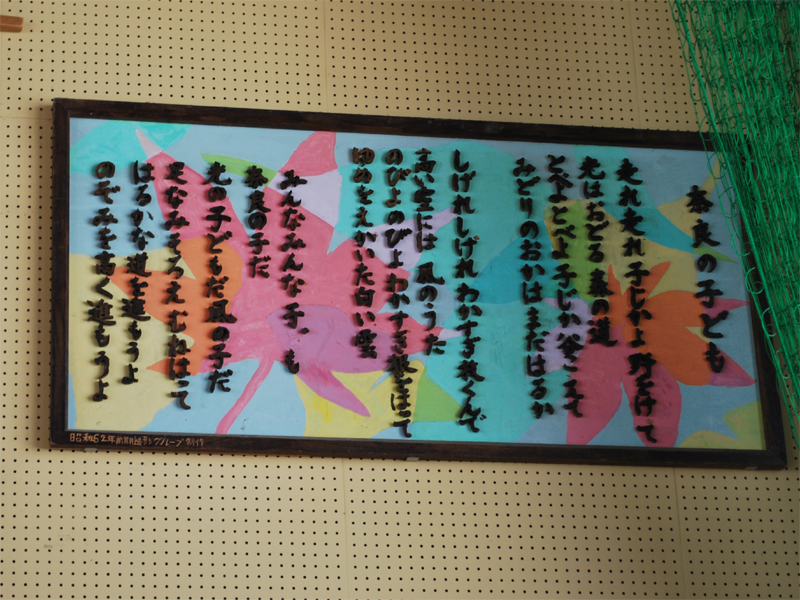 奈良の子ども
走れ走れ子じかよ野をかけて
光はおどる森の道
とべよとべよ子じか谷こえて
みどりのおかはまだはるか
しげれしげれわかすぎ枝くんで
高い空には風のうた
のびよのびよわかすぎ根をはって
ゆめをえがいた白い雲
みんなみんな子ども
奈良の子だ
光の子どもだ風の子だ
足なみそろえむねはって
はるかな道を進もうよ
のぞみを高く進もうよ
昭和62年 グループ制作